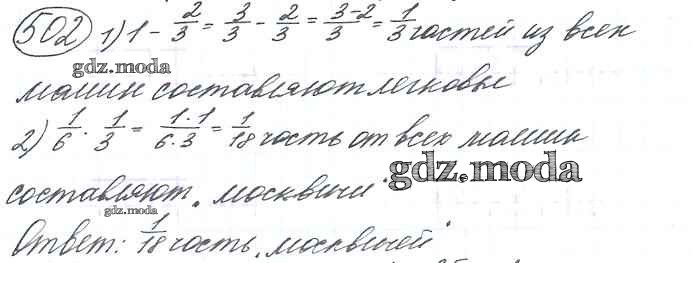 502 1) 1 - 2/3 = 3/3 - 2/3 = 3-2/3 = 1/3 частей из всех
gdz.moda
машин составляют легковые
2) 1/6 · 1/3 = 1·1/6·3 = 1/18 часть от всех машин
gdz.moda
составляют „москвичи"
gdz.moda
Ответ: 1/18 часть „москвичей".